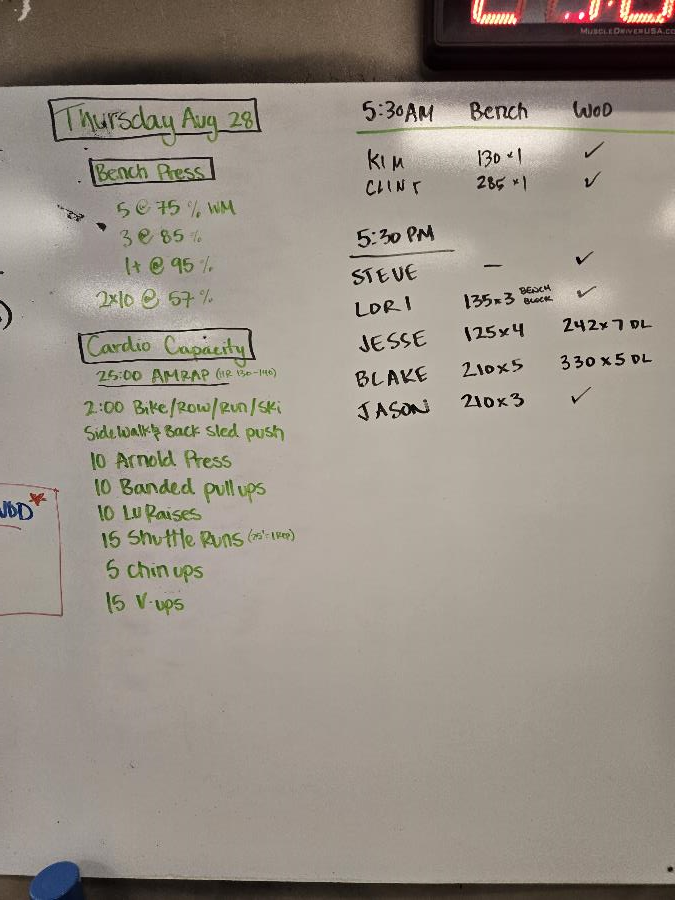 MUSCLEDRIVERUSA.CO
Thursday Aug 28
Bench Press
5 @ 75% WM
3 @ 85%
1+ @ 95%
2x10 @ 57%
Cardio Capacity
25:00 AMRAP (HR 130-140)
2:00 Bike/Row/Run/Ski
Sidewalk & Back Sled push
10 Arnold Press
10 Banded pull ups
10 Lu Raises
15 Shuttle Runs (25'=1 Rep)
5 chin ups
15 V-ups
5:30AM Bench WOD
KIM 130x1 ✓
CLINT 285x1 ✓
5:30 PM
STEVE — ✓
LORI 135x3 BENCH BLOCK ✓
JESSE 125x4 242x7 DL
BLAKE 210x5 330x5 DL
JASON 210x3 ✓
WOD